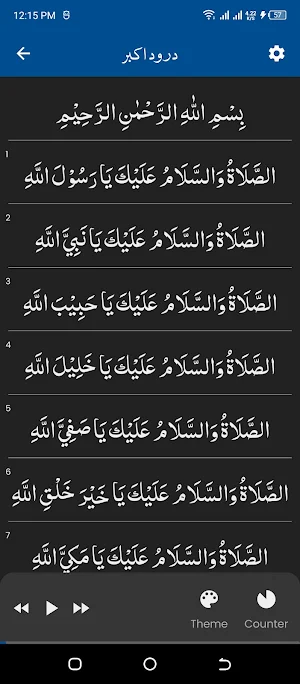 12:15 PM 4.22 K/s 57
درود اکبر
بِسْمِ اللّٰهِ الرَّحْمٰنِ الرَّحِيْمِ
1
الصَّلَاةُ وَالسَّلَامُ عَلَيْكَ يَا رَسُوْلَ اللَّهِ
2
الصَّلَاةُ وَالسَّلَامُ عَلَيْكَ يَا نَبِيَّ اللَّهِ
3
الصَّلَاةُ وَالسَّلَامُ عَلَيْكَ يَا حَبِيْبَ اللَّهِ
4
الصَّلَاةُ وَالسَّلَامُ عَلَيْكَ يَا خَلِيْلَ اللَّهِ
5
الصَّلَاةُ وَالسَّلَامُ عَلَيْكَ يَا صَفِيَّ اللَّهِ
6
الصَّلَاةُ وَالسَّلَامُ عَلَيْكَ يَا خَيْرَ خَلْقِ اللَّهِ
7
الصَّلَاةُ وَالسَّلَامُ عَلَيْكَ يَا مَكِيَّ اللَّهِ
Theme Counter